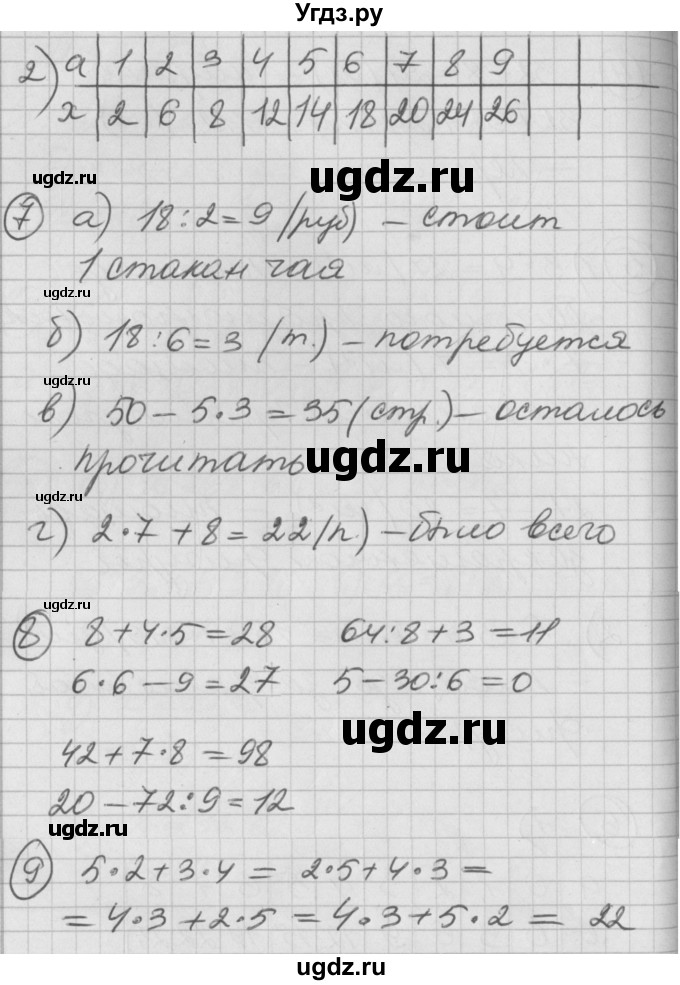 Угдз.ру
2) a | 1 | 2 | 3 | 4 | 5 | 6 | 7 | 8 | 9
x | 2 | 6 | 8 | 12 | 14 | 18 | 20 | 24 | 26
ugdz.ru ugdz.ru
7 а) 18:2=9 (руб) – стоит
1 стакан чая
ugdz.ru
б) 18:6=3 (т.) – потребуется
ugdz.ru
в) 50–5·3=35 (стр.) – осталось
прочитать ugdz.ru
ugdz.ru
г) 2·7+8=22 (п.) – было всего
ugdz.ru
8 8+4·5=28 64:8+3=11
6·6–9=27 5–30:6=0
ugdz.ru ugdz.ru
42+7·8=98
20–72:9=12
ugdz.ru
9 5·2+3·4 = 2·5+4·3 =
= 4·3+2·5 = 4·3+5·2 = 22
ugdz.ru